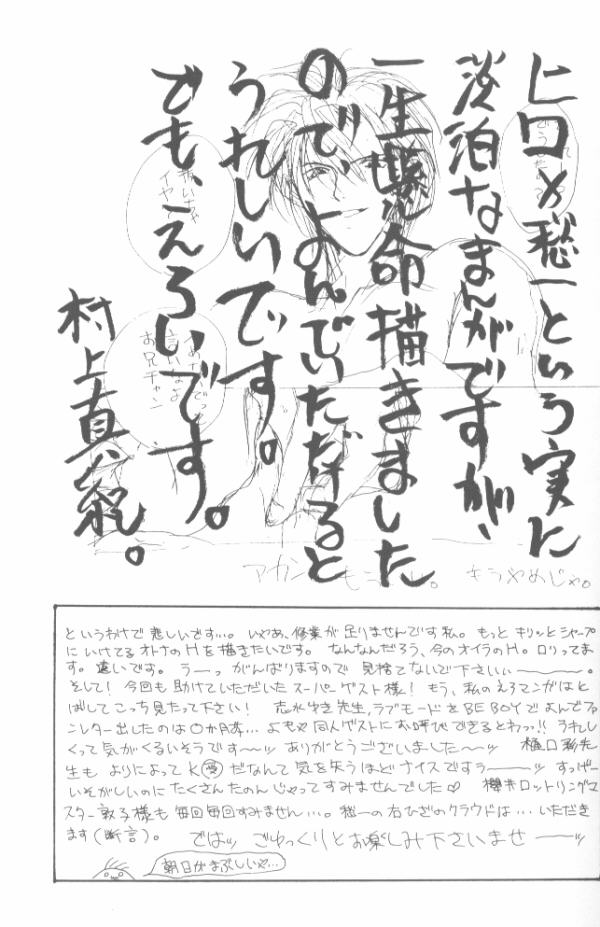 ヒロ×愁一という実に
淡泊なまんがですが、
一生懸命描きました
ので、よんでいただけると
うれしいです。
でも、えろいです。
村上真紀。
お兄チャン
キラやめじゃ。
というわけで悲しいです…。いやあ、修業が足りませんです私。もっとキリッとシャープ
にいけてるオトナのHを描きたいです。なんなんだろう、今のオイラのH。ロリってま
す。遠いです。うーっ がんばりますので見捨てないで下さいぃ———。
そして!今回も助けていただいたスーパーゲスト様!もう、私のえろマンガはと
ばしてこっち見たって下さい! 志水ゆき先生、ラブモードをBE BOYでよんでファ
ンレター出したのは〇か月前…よもや同人ゲストにお呼びできるとわっ!!うれし
くって気がくるいそうです〜〜ッ ありがとうございました〜ッ 樋口 先
生もよりによってKだなんて気を失うほどナイスですぅーーーッ すっげー
いそがしいのにたくさんたのんじゃってすみませんでした♡ 櫻井ロットリングマ
スター敦子様も毎回毎回すみません…。愁一の右ひざのクラウドは…いただき
ます(断言)。 ではッ ごゆっくりとお楽しみ下さいませ——ッ
朝日がまぶしいや…